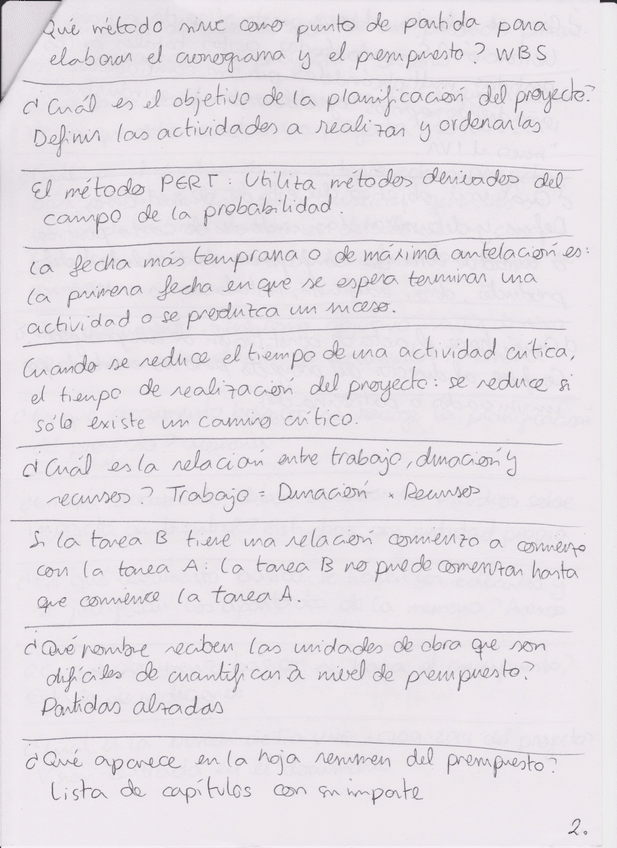 Qué método sirve como punto de partida para
elaborar el cronograma y el presupuesto? WBS
¿Cuál es el objetivo de la planificación del proyecto?
Definir las actividades a realizar y ordenarlas
El método PERT: Utiliza métodos derivados del
campo de la probabilidad.
La fecha más temprana o de máxima antelación es:
la primera fecha en que se espera terminar una
actividad o se produzca un suceso.
Cuando se reduce el tiempo de una actividad crítica,
el tiempo de realización del proyecto: se reduce si
sólo existe un camino crítico.
¿Cuál es la relación entre trabajo, duración y
recursos? Trabajo = Duración × Recursos
Si la tarea B tiene una relación comienzo a comienzo
con la tarea A: la tarea B no puede comenzar hasta
que comience la tarea A.
¿Qué nombre reciben las unidades de obra que son
difíciles de cuantificar a nivel de presupuesto?
Partidas alzadas
¿Qué aparece en la hoja resumen del presupuesto?
Lista de capítulos con su importe
2.